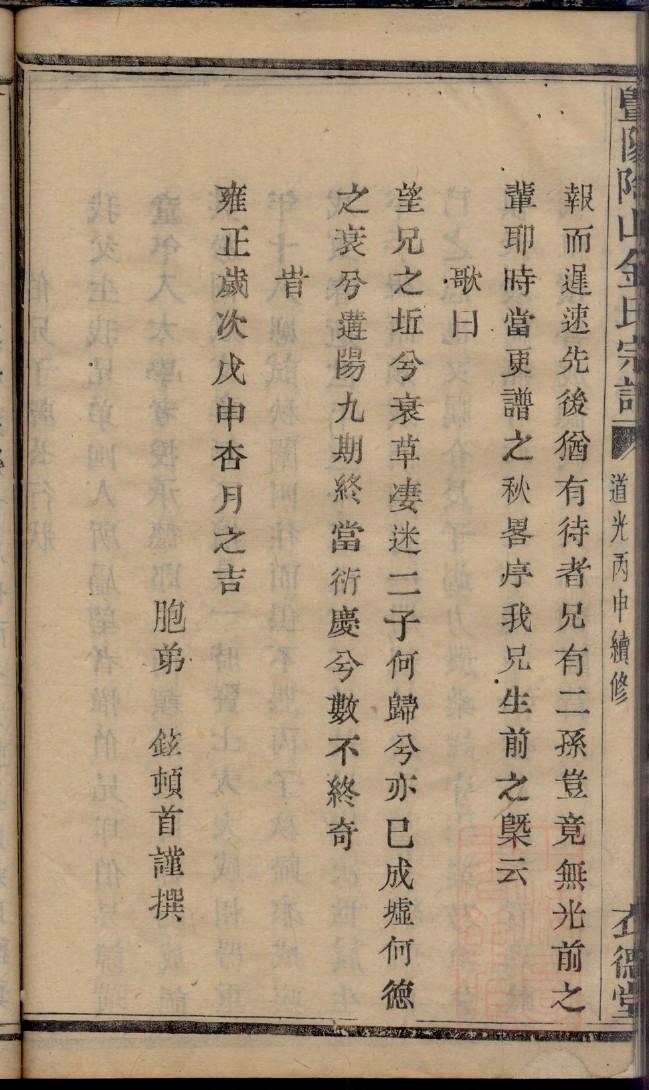 暨陽陶山金氏宗譜
道光丙申續修
衣德堂
報而遲速先後猶有待者兄有二孫豈竟無光前之
輩耶時當更譜之秋畧序我兄生前之槩云
歌曰
望兄之坵兮衰草凄迷二子何歸兮亦已成墟何德
之衰兮遘陽九期終當衍慶兮數不終奇
旹
雍正歲次戊申杏月之吉
胞弟 鉉頓首謹撰